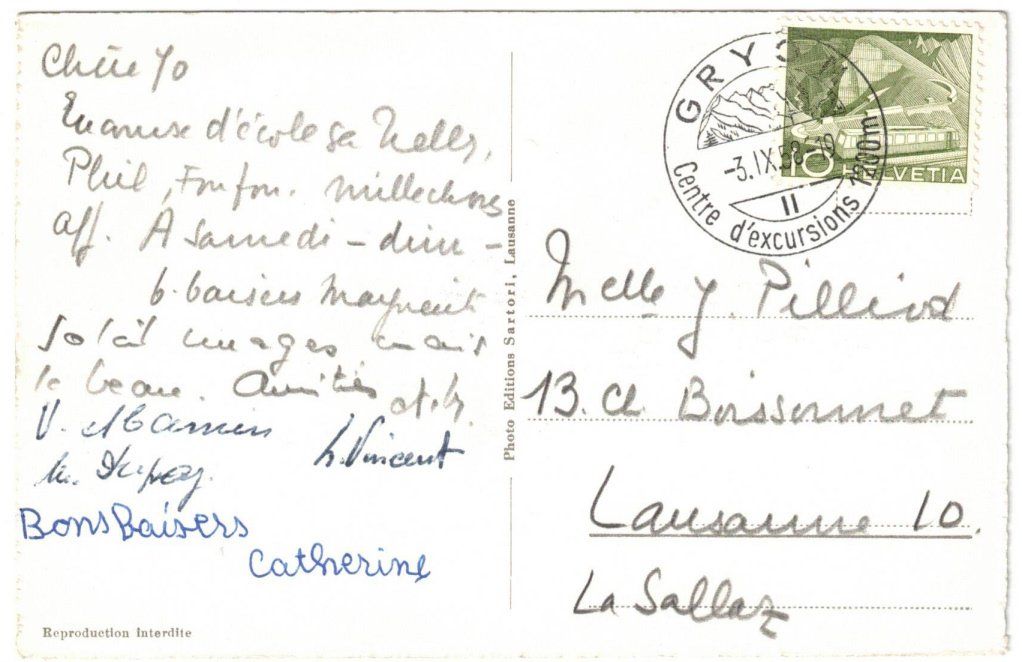 Chère Yo
d'école sa Nelly,
Phil, Fonfon. mille choses
aff. A samedi - dim -
b. baisers Marguerite
Soleil nuages mais
le beau. Amitiés
V.
h. Vincent
Bons Baisers
Catherine
Reproduction interdite
Photo Editions Sartori, Lausanne
GRYON
-3.IX.58-10
II
Centre d'excursions 1200m.
10 HELVETIA
Melle Y. Pilliod
13. ch Boissonnet
Lausanne 10.
La Sallaz